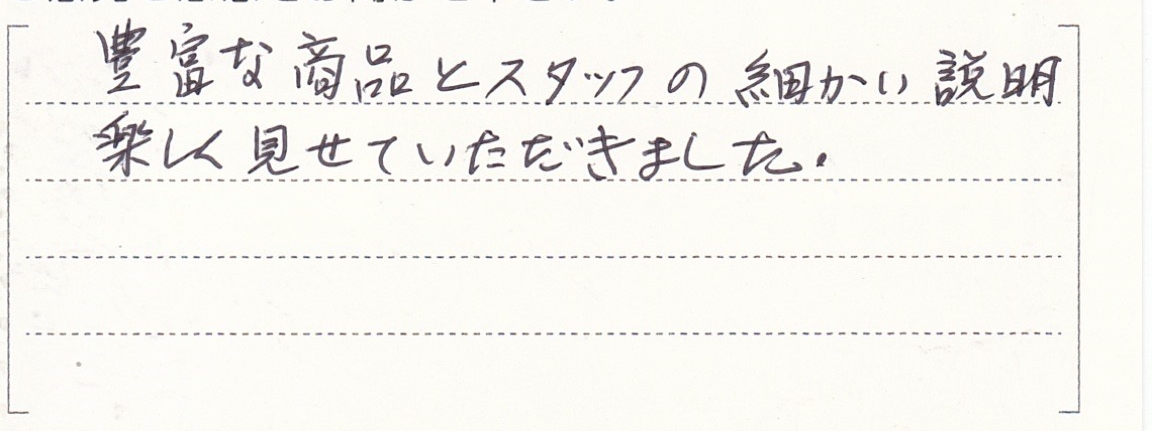 豊富な商品とスタッフの細かい説明
楽しく見せていただきました。